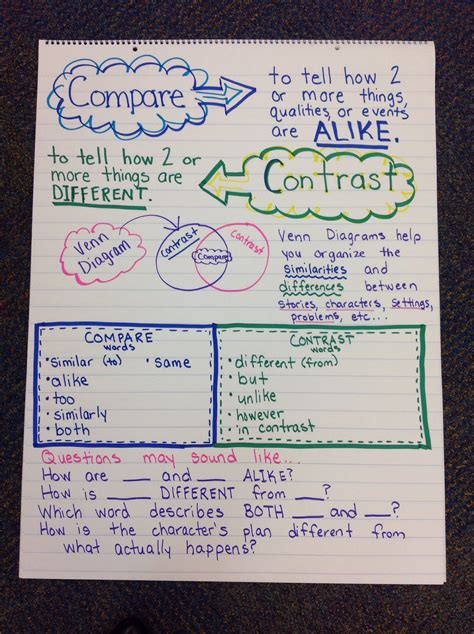 Compare
to tell how 2
or more things,
qualities, or events
are ALIKE.
to tell how 2 or
more things are
DIFFERENT.
Contrast
Venn
Diagram
Contrast
Compare
Contrast
Venn Diagrams help
you organize the
similarities and
differences between
stories, characters, settings,
problems, etc...
COMPARE
words
• similar (to)
• same
• alike
• too
• similarly
• both
CONTRAST
words
• different (from)
• but
• unlike
• however
• in contrast
Questions may sound like...
How are ___ and ___ ALIKE?
How is ___ DIFFERENT from ___?
Which word describes BOTH ___ and ___?
How is the character's plan different from
what actually happens?